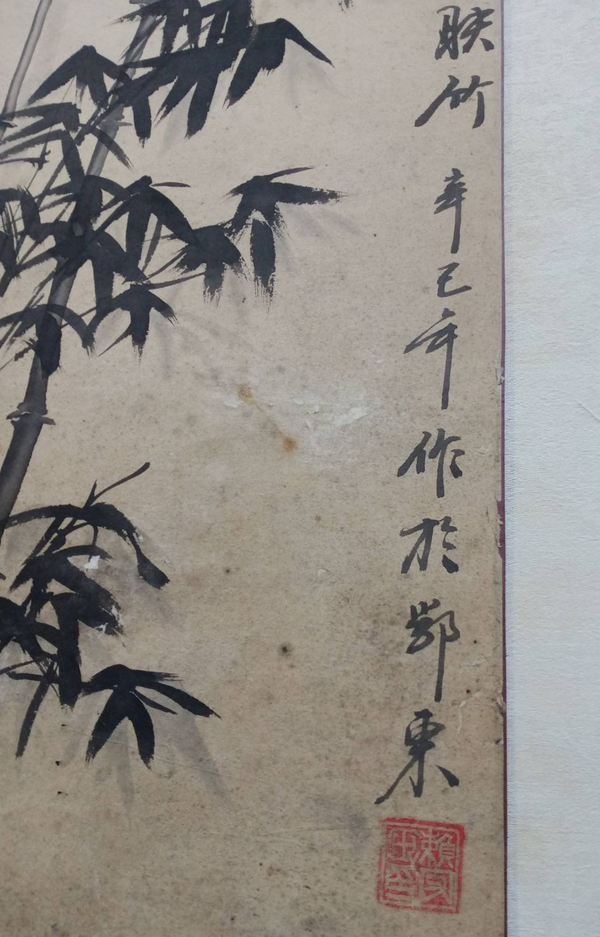 竹 辛巳年作於鄂東